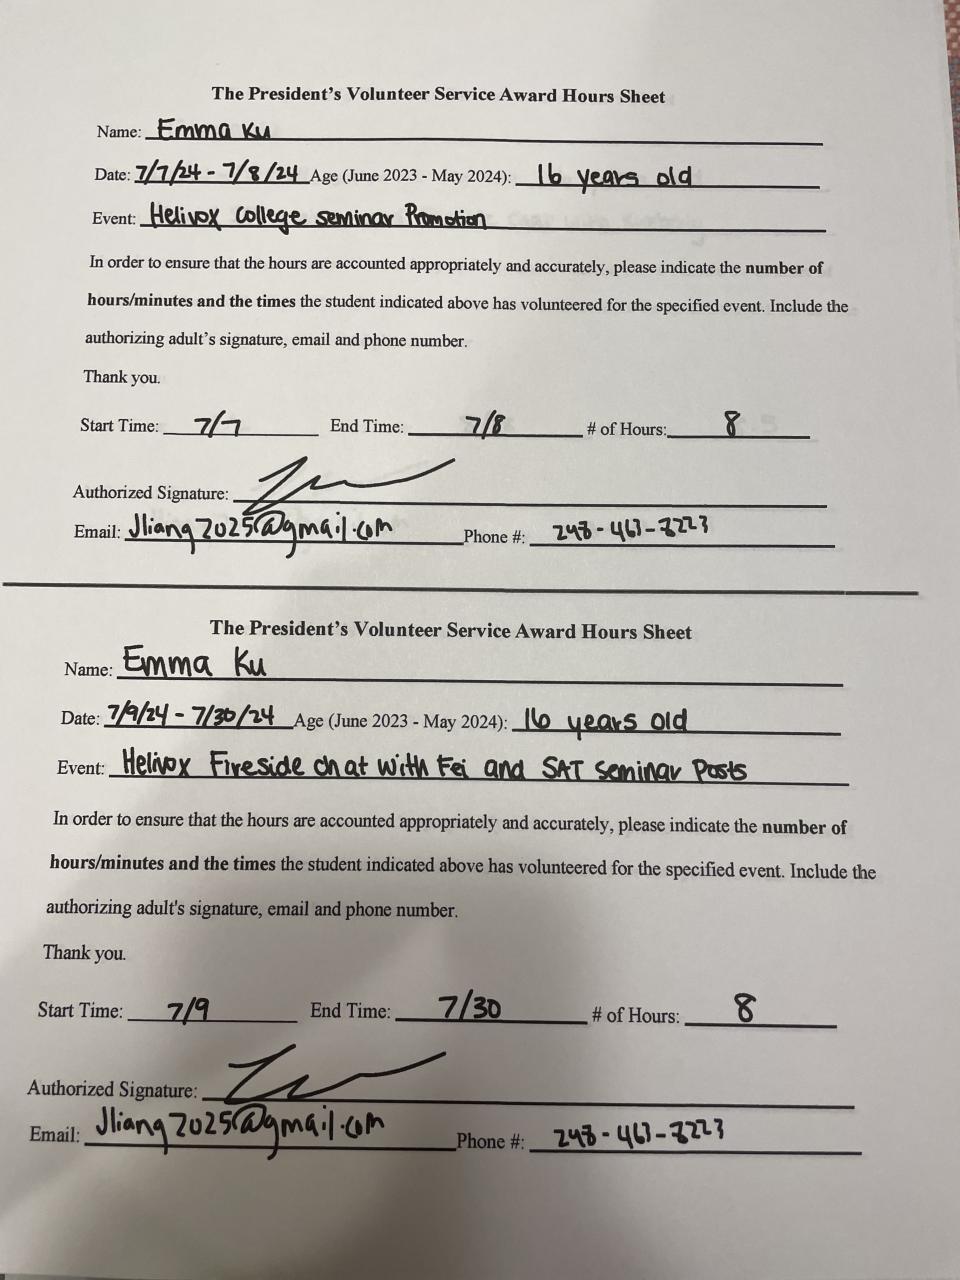 The President's Volunteer Service Award Hours Sheet
Name: Emma Ku
Date: 7/7/24 - 7/8/24 Age (June 2023 - May 2024): 16 years old
Event: Helivox college seminar Promotion
In order to ensure that the hours are accounted appropriately and accurately, please indicate the number of
hours/minutes and the times the student indicated above has volunteered for the specified event. Include the
authorizing adult's signature, email and phone number.
Thank you.
Start Time: 7/7 End Time: 7/8 # of Hours: 8
Authorized Signature:
Email: Jliang2025@gmail.com Phone #: 248-463-
The President's Volunteer Service Award Hours Sheet
Name: Emma Ku
Date: 7/9/24 - 7/30/24 Age (June 2023 - May 2024): 16 years old
Event: Helivox Fireside chat with Fei and SAT seminar Posts
In order to ensure that the hours are accounted appropriately and accurately, please indicate the number of
hours/minutes and the times the student indicated above has volunteered for the specified event. Include the
authorizing adult's signature, email and phone number.
Thank you.
Start Time: 7/9 End Time: 7/30 # of Hours: 8
Authorized Signature:
Email: Jliang2025@gmail.com Phone #: 248-463-